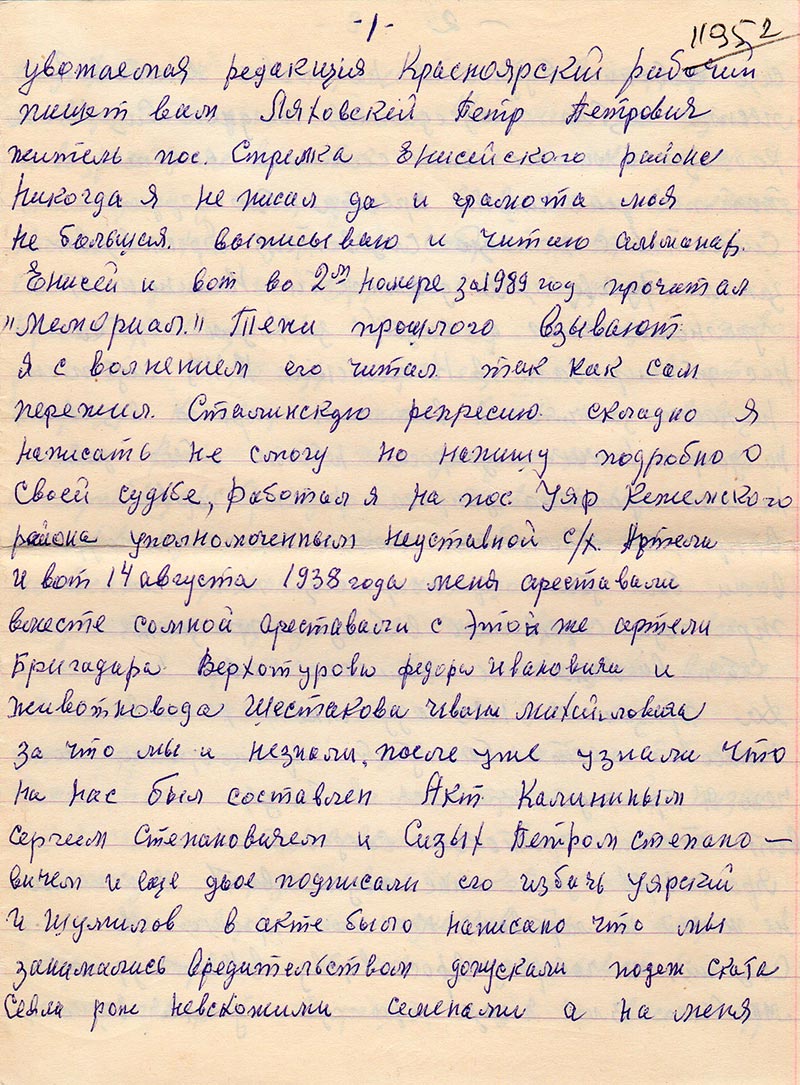 -1-
11952
уважаемая редакция Красноярский рабочий
пишет вам Ляховский Петр Петрович
житель пос. Стрелка Енисейского района
Никогда я не писал да и грамота моя
не большая. выписываю и читаю альманах.
Енисей и вот во 2м Номере за 1989 год прочитал
"Мемориал." Тени прошлого взывают
я с волнением его читал так как сам
пережил Сталинскую репресию складно я
написать не смогу но напишу подробно о
своей судьбе, работал я на пос Уяр Кежемского
района уполномоченным Неуставной с/х. Артели
и вот 14 августа 1938 года меняареставали
вместе сомной ареставали с этой же артели
Бригадира Верхотурова федора ивановича и
животновода Шестакова ивана михайловича
за что мы и незнали, после уже узнали что
на нас был составлен Акт Калининым
сергеем Степановичем и Сизых Петром степано-
вичем и еще двое подписали его избачь уярский
и шумилов в акте было написано что мы
занимались вредительством допускали подеж скота
Сеяли рож невсхожими семенами а на меня